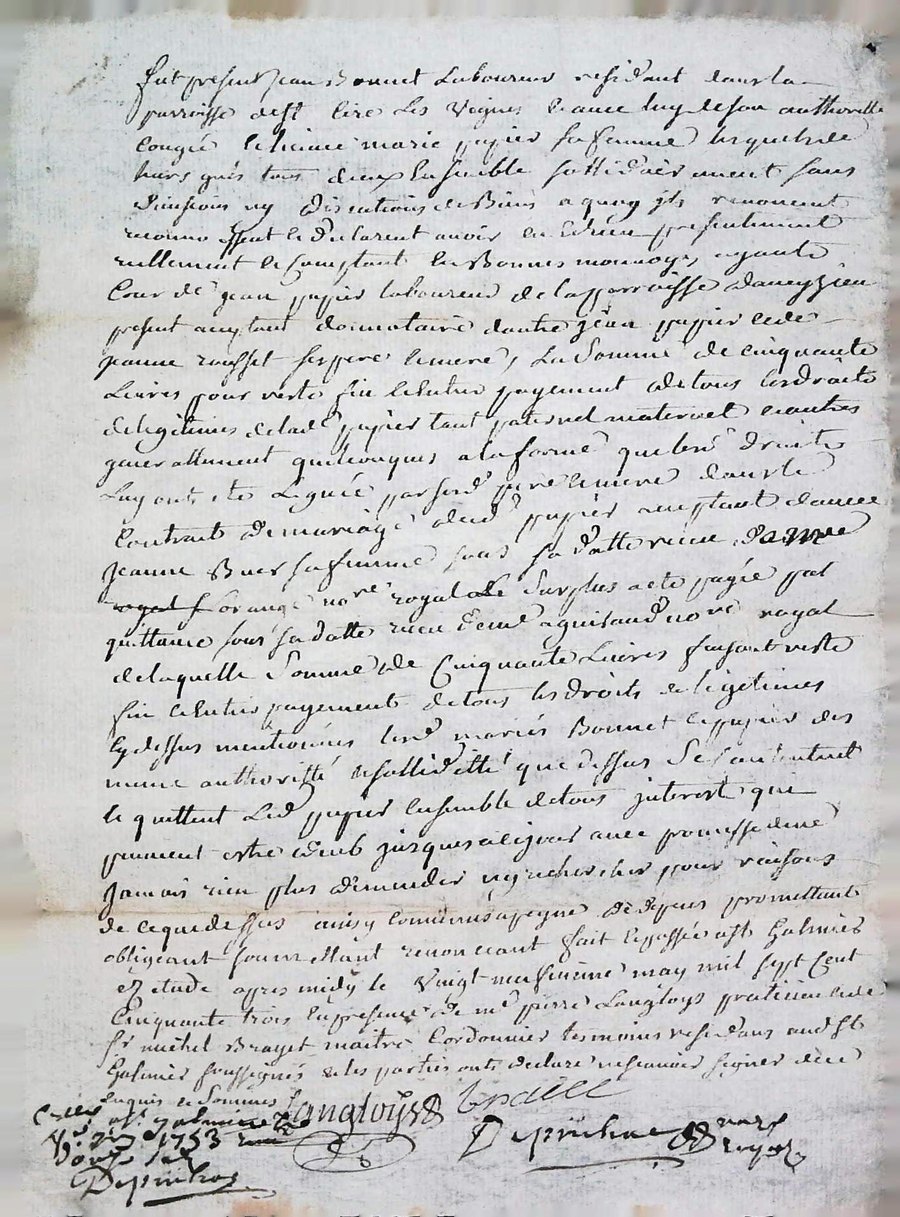 fut present Jean Bonnet laboureur residant dans la
parroisse de St Cire les Vignes et avec luy de son authorité
congée et licence marie papier sa femme lesquels de
leurs grés tous deux ensemble sollidairement sans
division ny discutions de Biens a quoy ils renoncent
reconnoissent et declarent avoir eu et receu presentement
reellement et comptant en Bonnes monnoyes ayants
Cour de jean papier laboureur de la parroisse d'aveyzieu
present acceptant donnataire d'autre jean papier et de
jeanne rousset ses pere et mere, La Somme de cinquante
Livres pour reste fin et entier payement de tous les droits
de legitimes de lad papier tant paternel maternel et autres
generallement quelconques a la forme que les droits
luy ont ete legués par sesd pere et mere dans le
Contrat de mariage dud papier acceptant d'avec
Jeanne sa femme sous sa datte receu
orange no.re royal le Surplus a ete payée par
quittance sous sa datte receu de me aguiraud no.re royal
de laquelle Somme de Cinquante Livres faisant reste
fin et entier payement de tous les droits de legetimes
Cy dessus mentionnés lesd mariés Bonnet et papier des
meme authoritté et sollidditté que dessus se contentent
et quittent Led papier ensemble de tous jnterest que
peuvent estre deub jusques a ce jour avec promesse de ne
Jamais rien plus demender ny rechercher pour raisons
de ce que dessus ainsy convenus a peyne de depens promettant
obligeant soumettant renonceant fait et passée a St Galmier
ez etude apres midy le Vingt neufvieme may mil sept Cent
Cinquante trois en presence de me pierre Langloys praticien et de
sr michel Brayet maitre Cordonnier tesmoins residans aud St
Galmier soussignés et les parties onts declaré ne scavoir signer de ce
enquis et Sommés
Langloys
a st galmier
1753
Depinhac